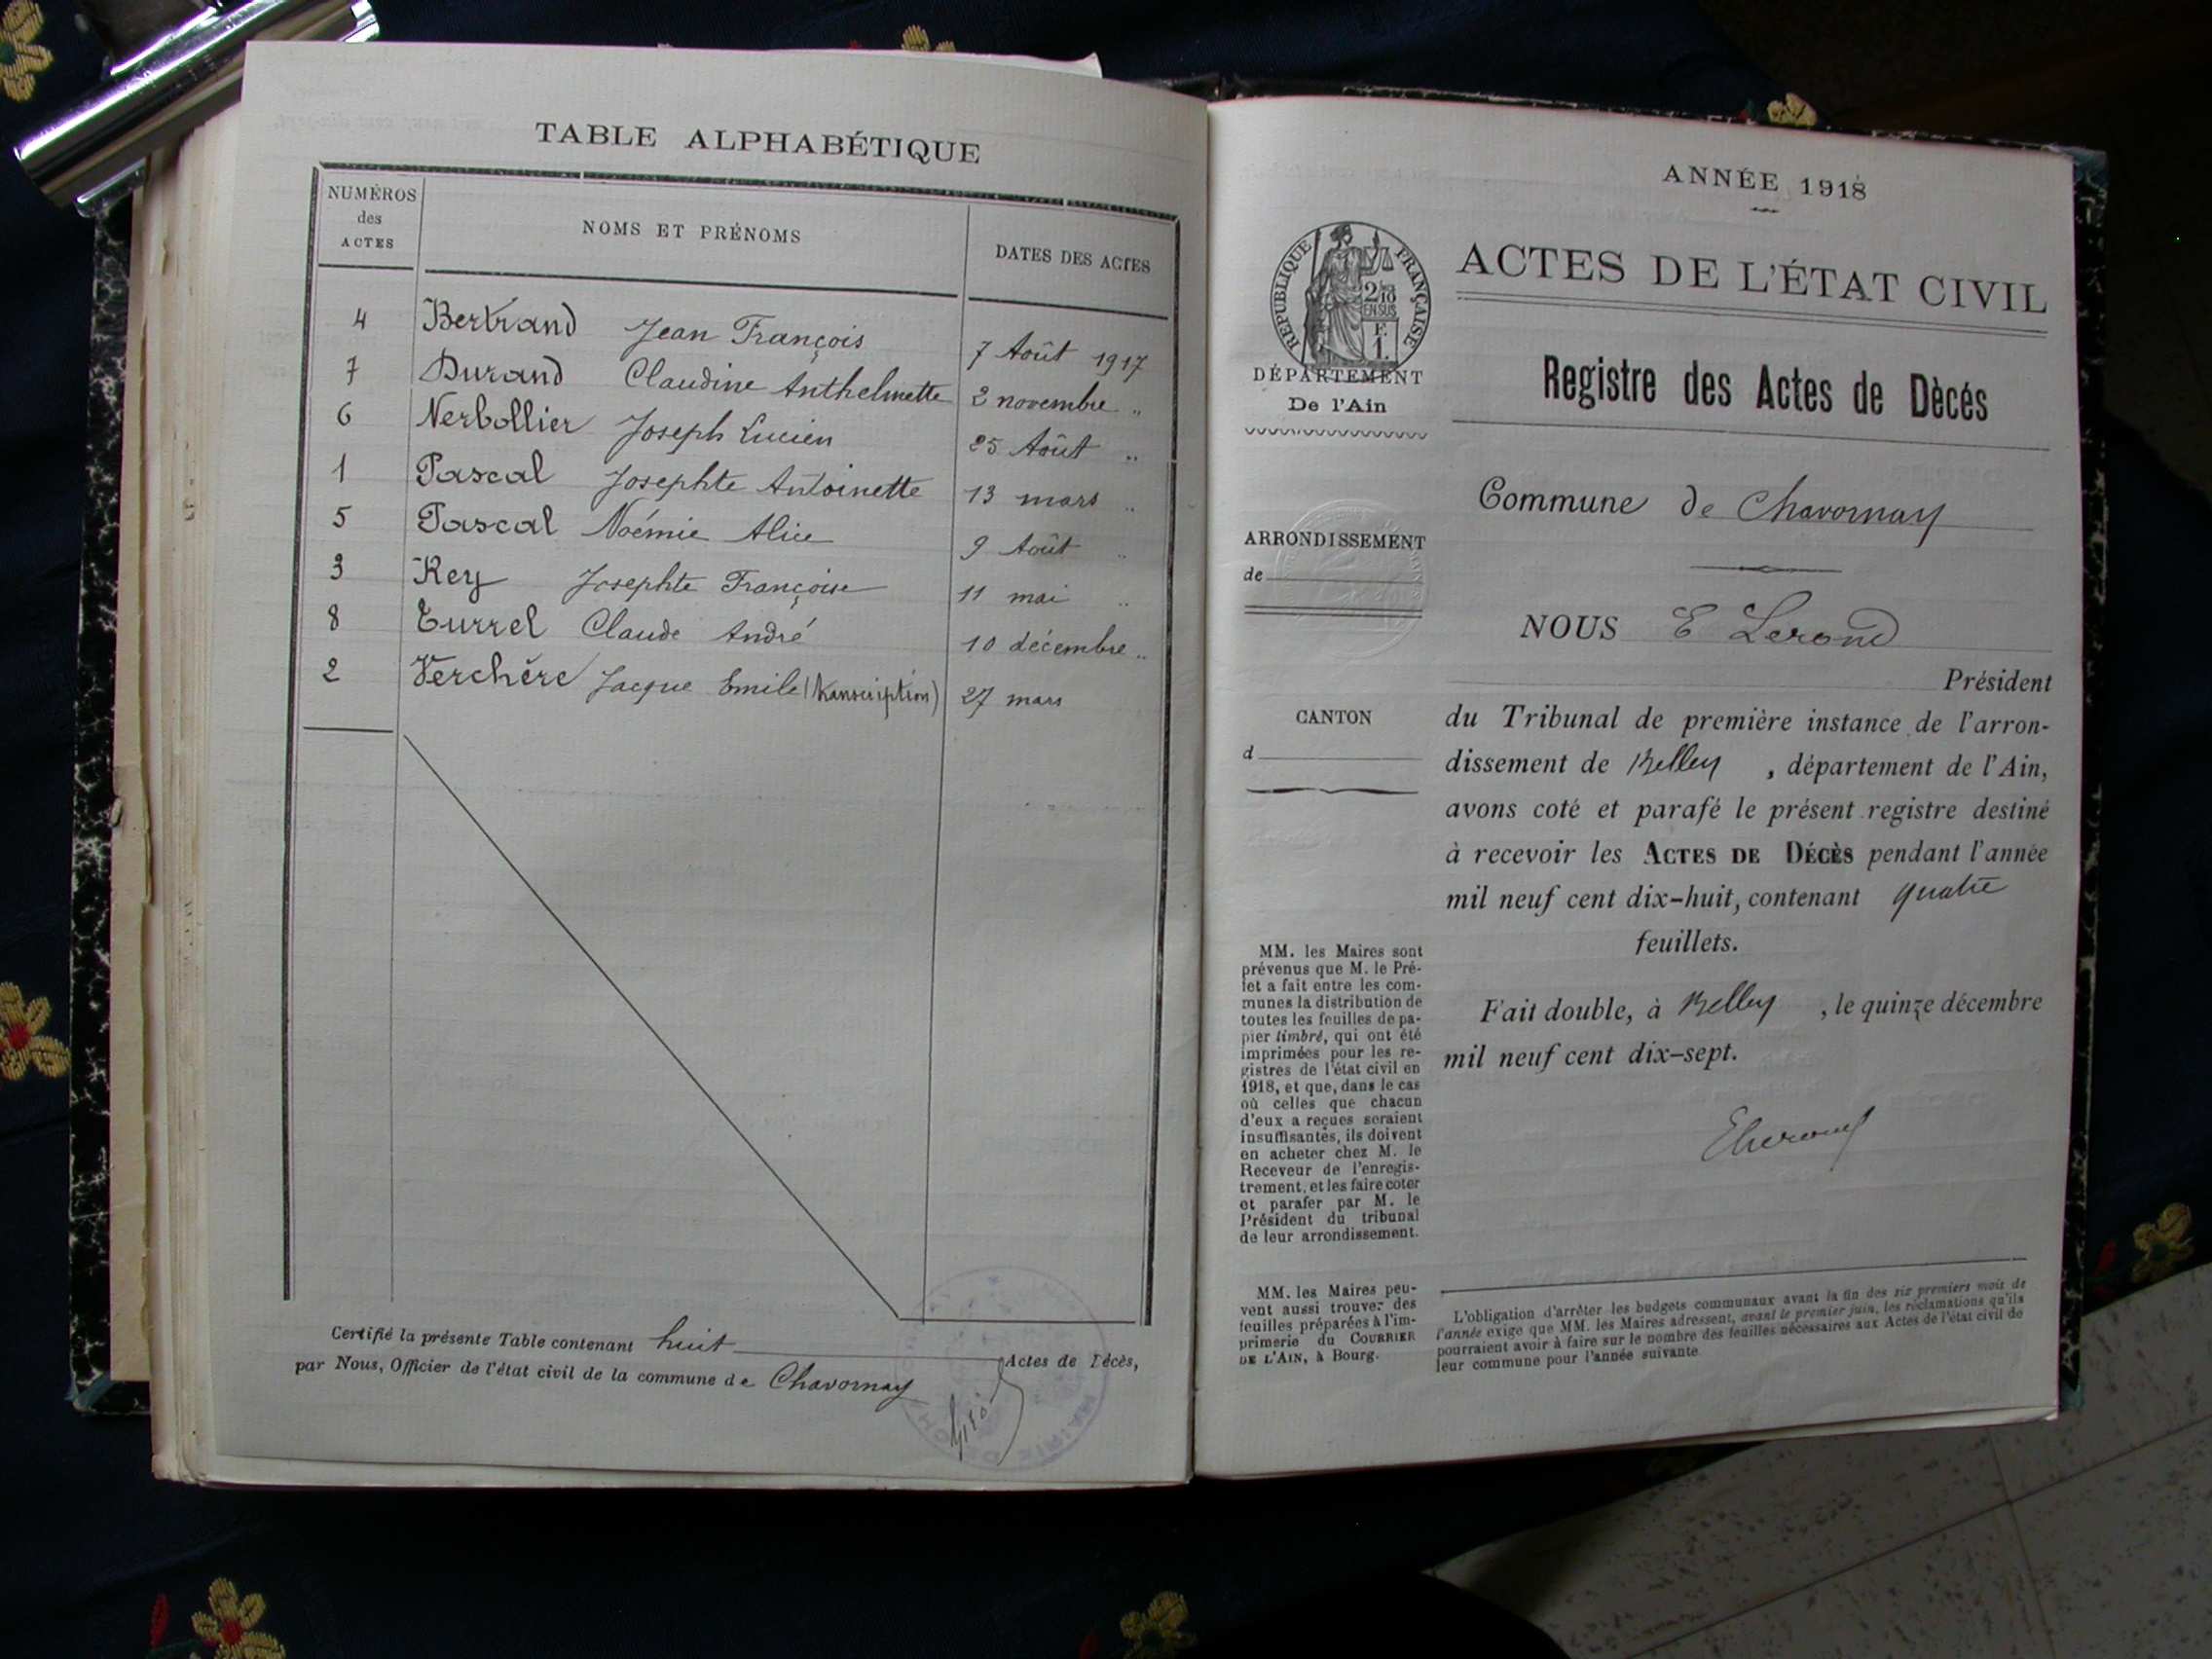 TABLE ALPHABÉTIQUE
NUMÉROS des ACTES
NOMS ET PRÉNOMS
DATES DES ACTES
4 Bertrand Jean François 7 Août 1917
7 Durand Claudine Anthelmette 2 novembre "
6 Nerbollier Joseph Lucien 25 Août "
1 Pascal Josephte Antoinette 13 mars "
5 Pascal Noémie Alice 9 Août "
3 Rey Josephte Françoise 11 mai "
8 Turrel Claude André 10 décembre "
2 Verchère Jacque Emile (transcription) 27 mars
Certifié la présente Table contenant huit Actes de Décès,
par Nous, Officier de l'état civil de la commune de Chavornay
ANNÉE 1918
RÉPUBLIQUE FRANÇAISE
2/10
EN SUS
F.
1.
ACTES DE L'ÉTAT CIVIL
DÉPARTEMENT
De l'Ain
Registre des Actes de Dècés
Commune de Chavornay
ARRONDISSEMENT
de
NOUS E Lerond
Président
CANTON
d
du Tribunal de première instance de l'arron-
dissement de Belley, département de l'Ain,
avons coté et parafé le présent registre destiné
à recevoir les ACTES DE DÉCÈS pendant l'année
mil neuf cent dix-huit, contenant quatre
feuillets.
Fait double, à Belley, le quinze décembre
mil neuf cent dix-sept.
ELerond
MM. les Maires sont
prévenus que M. le Pré-
fet a fait entre les com-
munes la distribution de
toutes les feuilles de pa-
pier timbré, qui ont été
imprimées pour les re-
gistres de l'état civil en
1918, et que, dans le cas
où celles que chacun
d'eux a reçues seraient
insuffisantes, ils doivent
en acheter chez M. le
Receveur de l'enregis-
trement, et les faire coter
et parafer par M. le
Président du tribunal
de leur arrondissement.
MM. les Maires peu-
vent aussi trouver des
feuilles préparées à l'im-
primerie du COURRIER
DE L'AIN, à Bourg.
L'obligation d'arrêter les budgets communaux avant la fin des six premiers mois de
l'année exige que MM. les Maires adressent, avant le premier juin, les réclamations qu'ils
pourraient avoir à faire sur le nombre des feuilles nécessaires aux Actes de l'état civil de
leur commune pour l'année suivante.